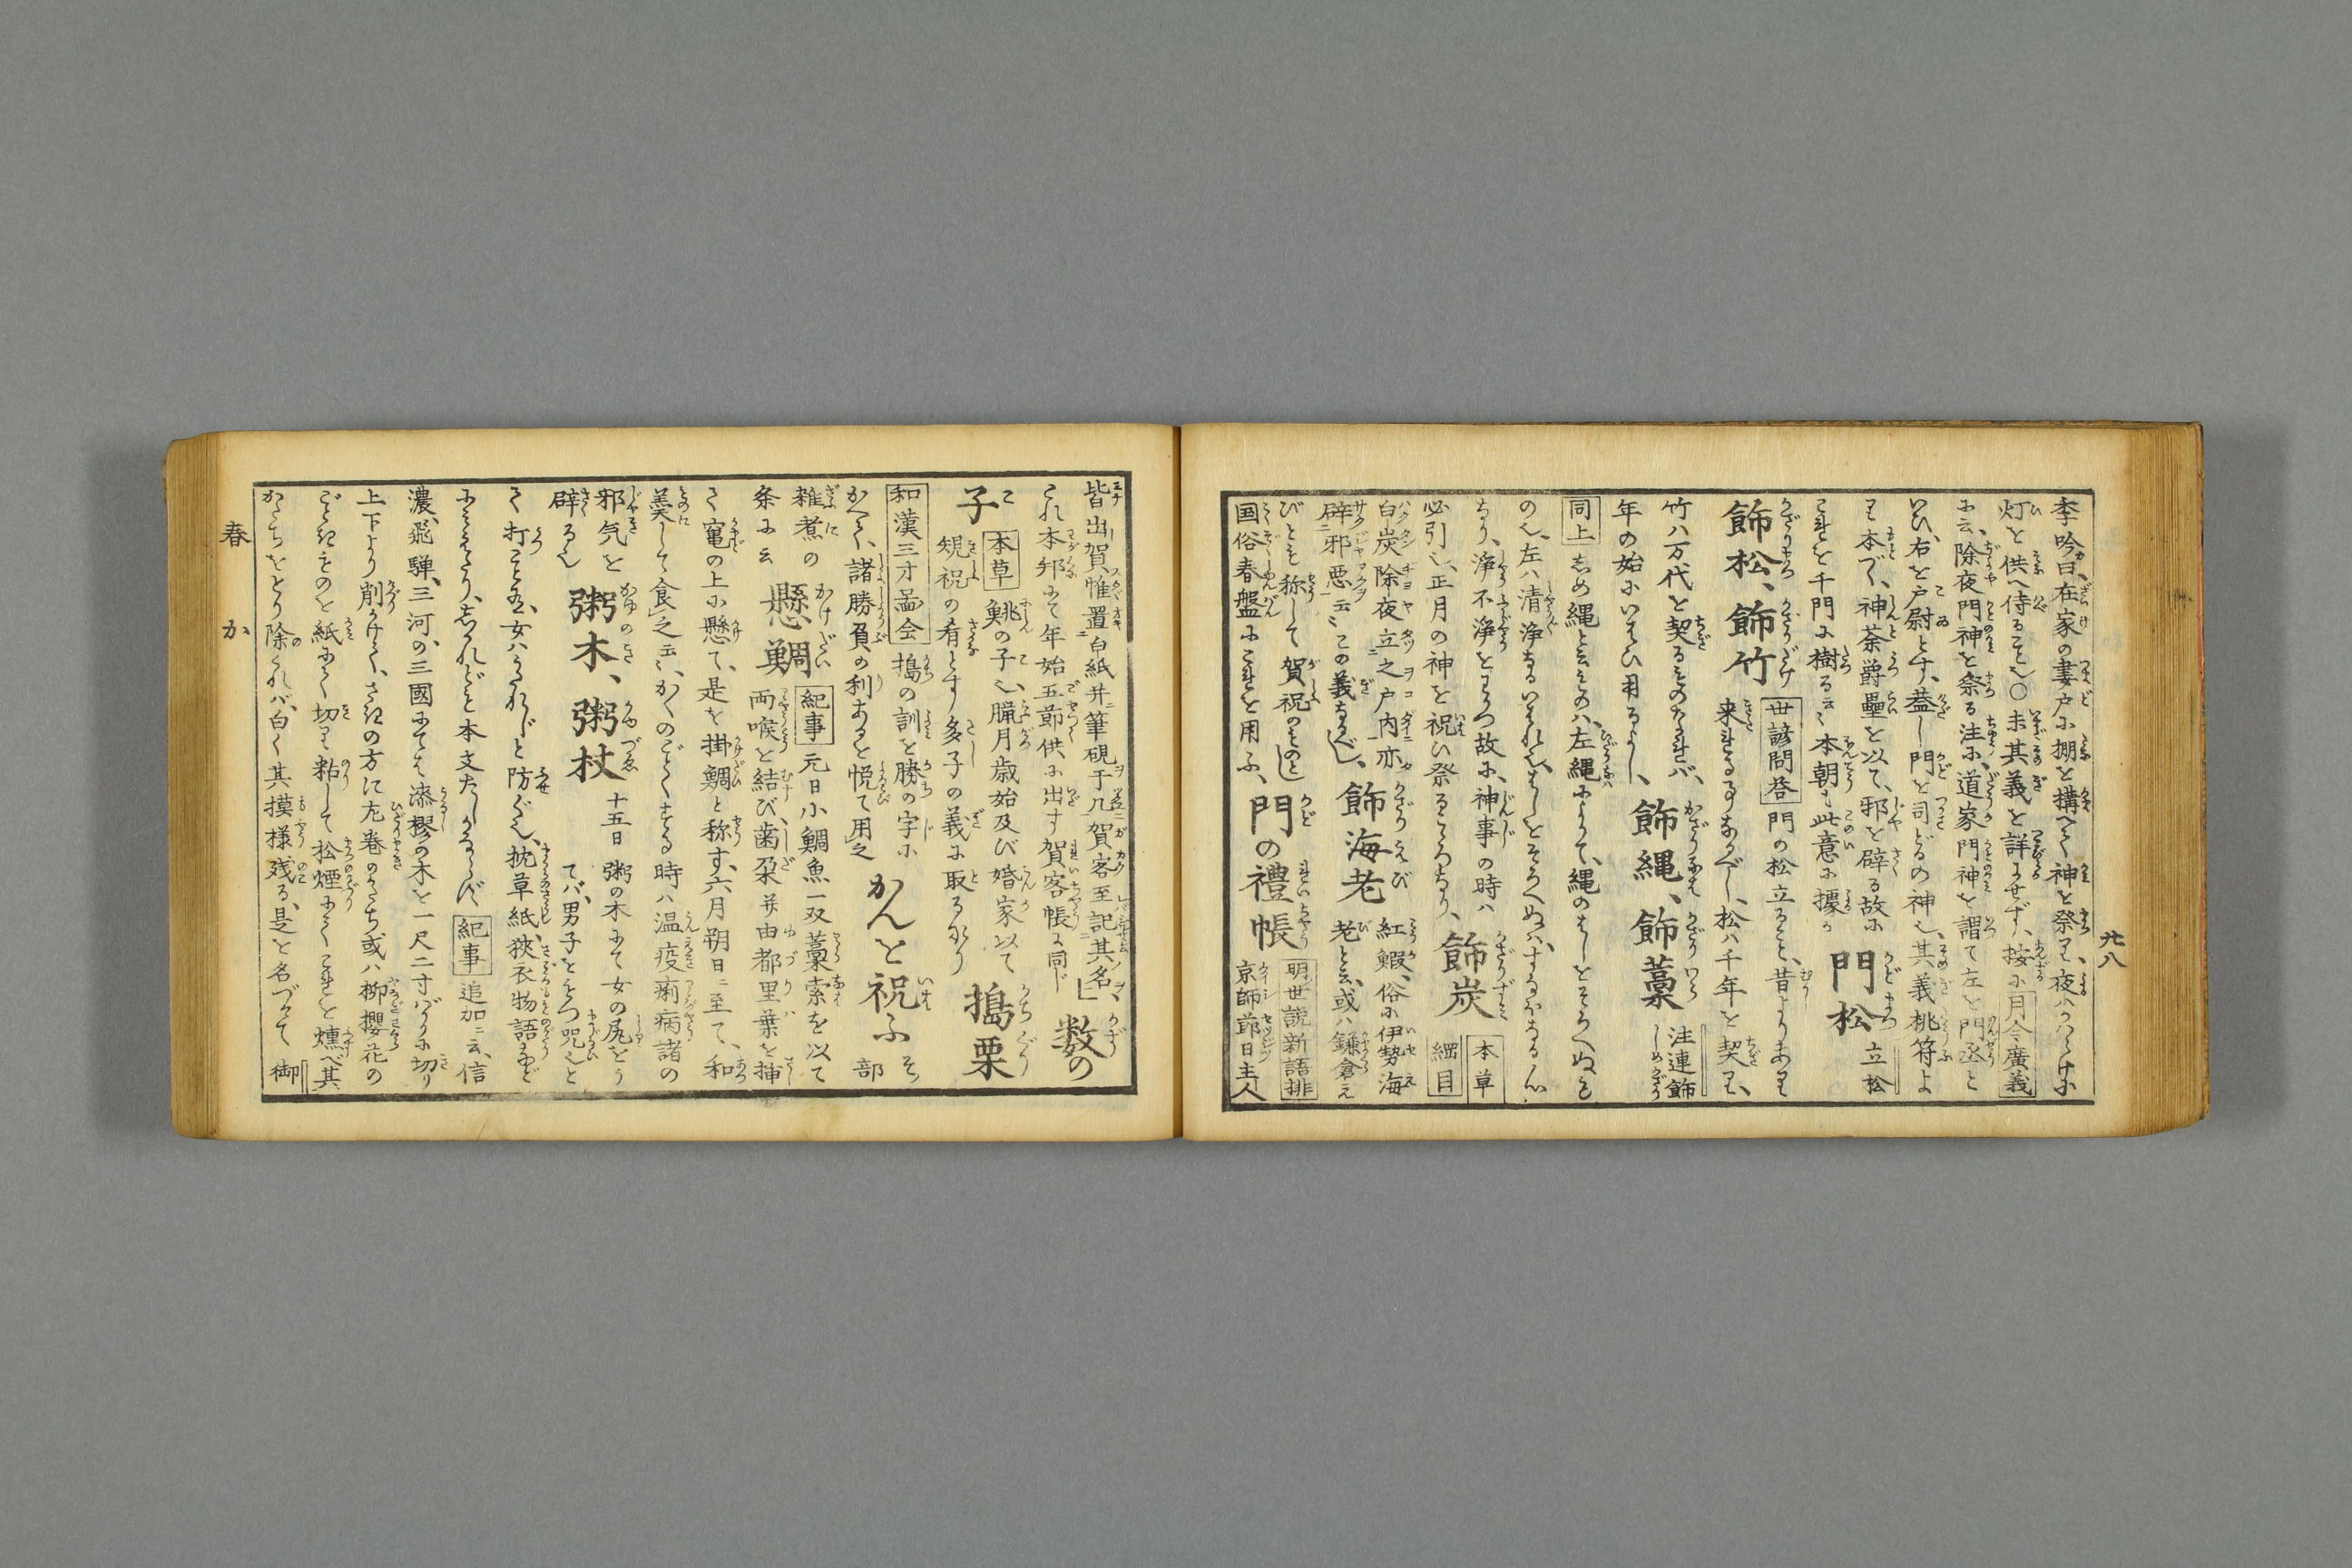 李吟曰、在家の妻戸に棚を構へて神を祭り、夜ハかハらけに
灯を供へ侍ることを也○未其義を詳にせず、按に月令廣義
に云、除夜門神を祭る注に、道家門神を謂て左を門丞と
いひ、右を戸尉とす、蓋し門を司どるの神也、其義桃符よ
り本づく、神荼欝壘を以て、邪を辟る故に
門松
立松
これを千門に樹る云々本朝も此意に據か
飾松、飾竹
世諺問答
門の松立ること、昔よりあり
来れる事なるべし、松ハ千年を契り、
竹ハ万代を契るものなれバ、
年の始にいはひ用るよし、
飾縄、飾藁
注連飾
しめかざり
同上
しめ縄と云ものハ、左縄によりて、縄のはしをそろへぬも
の也、左ハ清浄なるいはれ也、はしをそろへぬハ、すなほなる心
なり、浄不浄をわかつ故に、神事の時ハ
必引也、正月の神を祝ひ祭るこころなり、
飾炭
本草
綱目
白炭除夜立之戸内亦
辟邪悪云々この義なるべし、
飾海老
紅鰕、俗に伊勢海
老と云、或ハ鎌倉え
びとも称して賀祝のものとし
国俗春盤にこれを用ふ、
門の禮帳
明世説新語排
京師節日主人
九八
皆出賀、惟置白紙并筆硯于几、賀客至記其名、
これ本邦にて年始五節供に出す賀客帳に同じ
数の
子
本草
鯑の子也、臘月歳始及び婚家以て
規祝の肴とす多子の義に取るなり
搗栗
和漢三才圖会
搗の訓を勝の字に
かへて、諸勝負の利あるを悦て用之
かんを祝ふ
そ
部
雑煮の
条に云
懸鯛
紀事
元日小鯛魚一双藁索を以て
両喉を結び、歯朶并由都里葉を挿
て竃の上に懸て、是を掛鯛と称す、六月朔日ニ至て、和
羹して食之云々、かくのごとくする時ハ温疫痢病諸の
邪気を
辟る也
粥木、粥杖
十五日
粥の木にて女の尻をう
てバ、男子をもつ咒也と
て打こと也、女ハうたれじと防ぐ也、枕草紙、狭衣物語など
にみえたり、しかれども本文たしかならず
紀事
追加ニ云、信
濃、飛騨、三河の三國にては漆樛の木を一尺二寸ばかりに切り
上下より削かけて、さきの方に左巻のかたち或ハ柳櫻花の
ごときものを紙にて切り粘して松煙にてこれを燻べ其
かたちをとり除くれバ、白く其摸様残る、是を名づけて
御
春
か